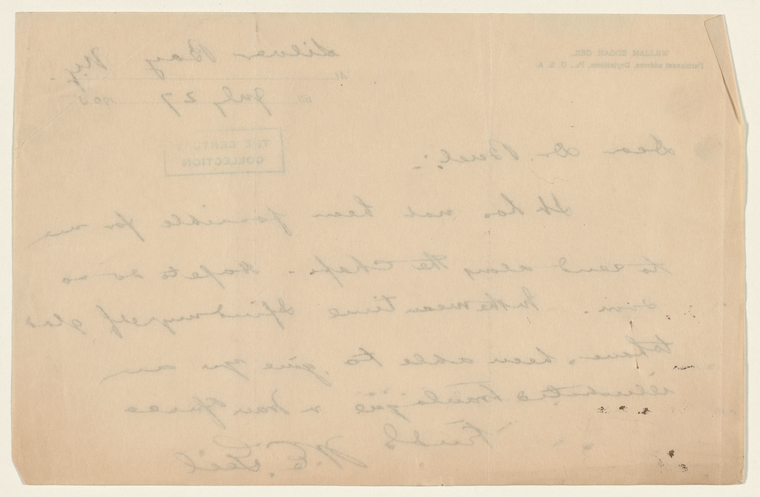 WILLIAM EDGAR GEIL
Permanent address, Doylestown, Pa., U. S. A.
At Silver Bay N.Y.
July 27 190
THE CENTURY
COLLECTION
Dear Dr. Buel:
It has not been possible for me
to send along the Chap. Hope to do so
soon. In the mean time I find myself glad
to have been able to give you an
illustrated
W. E. Geil